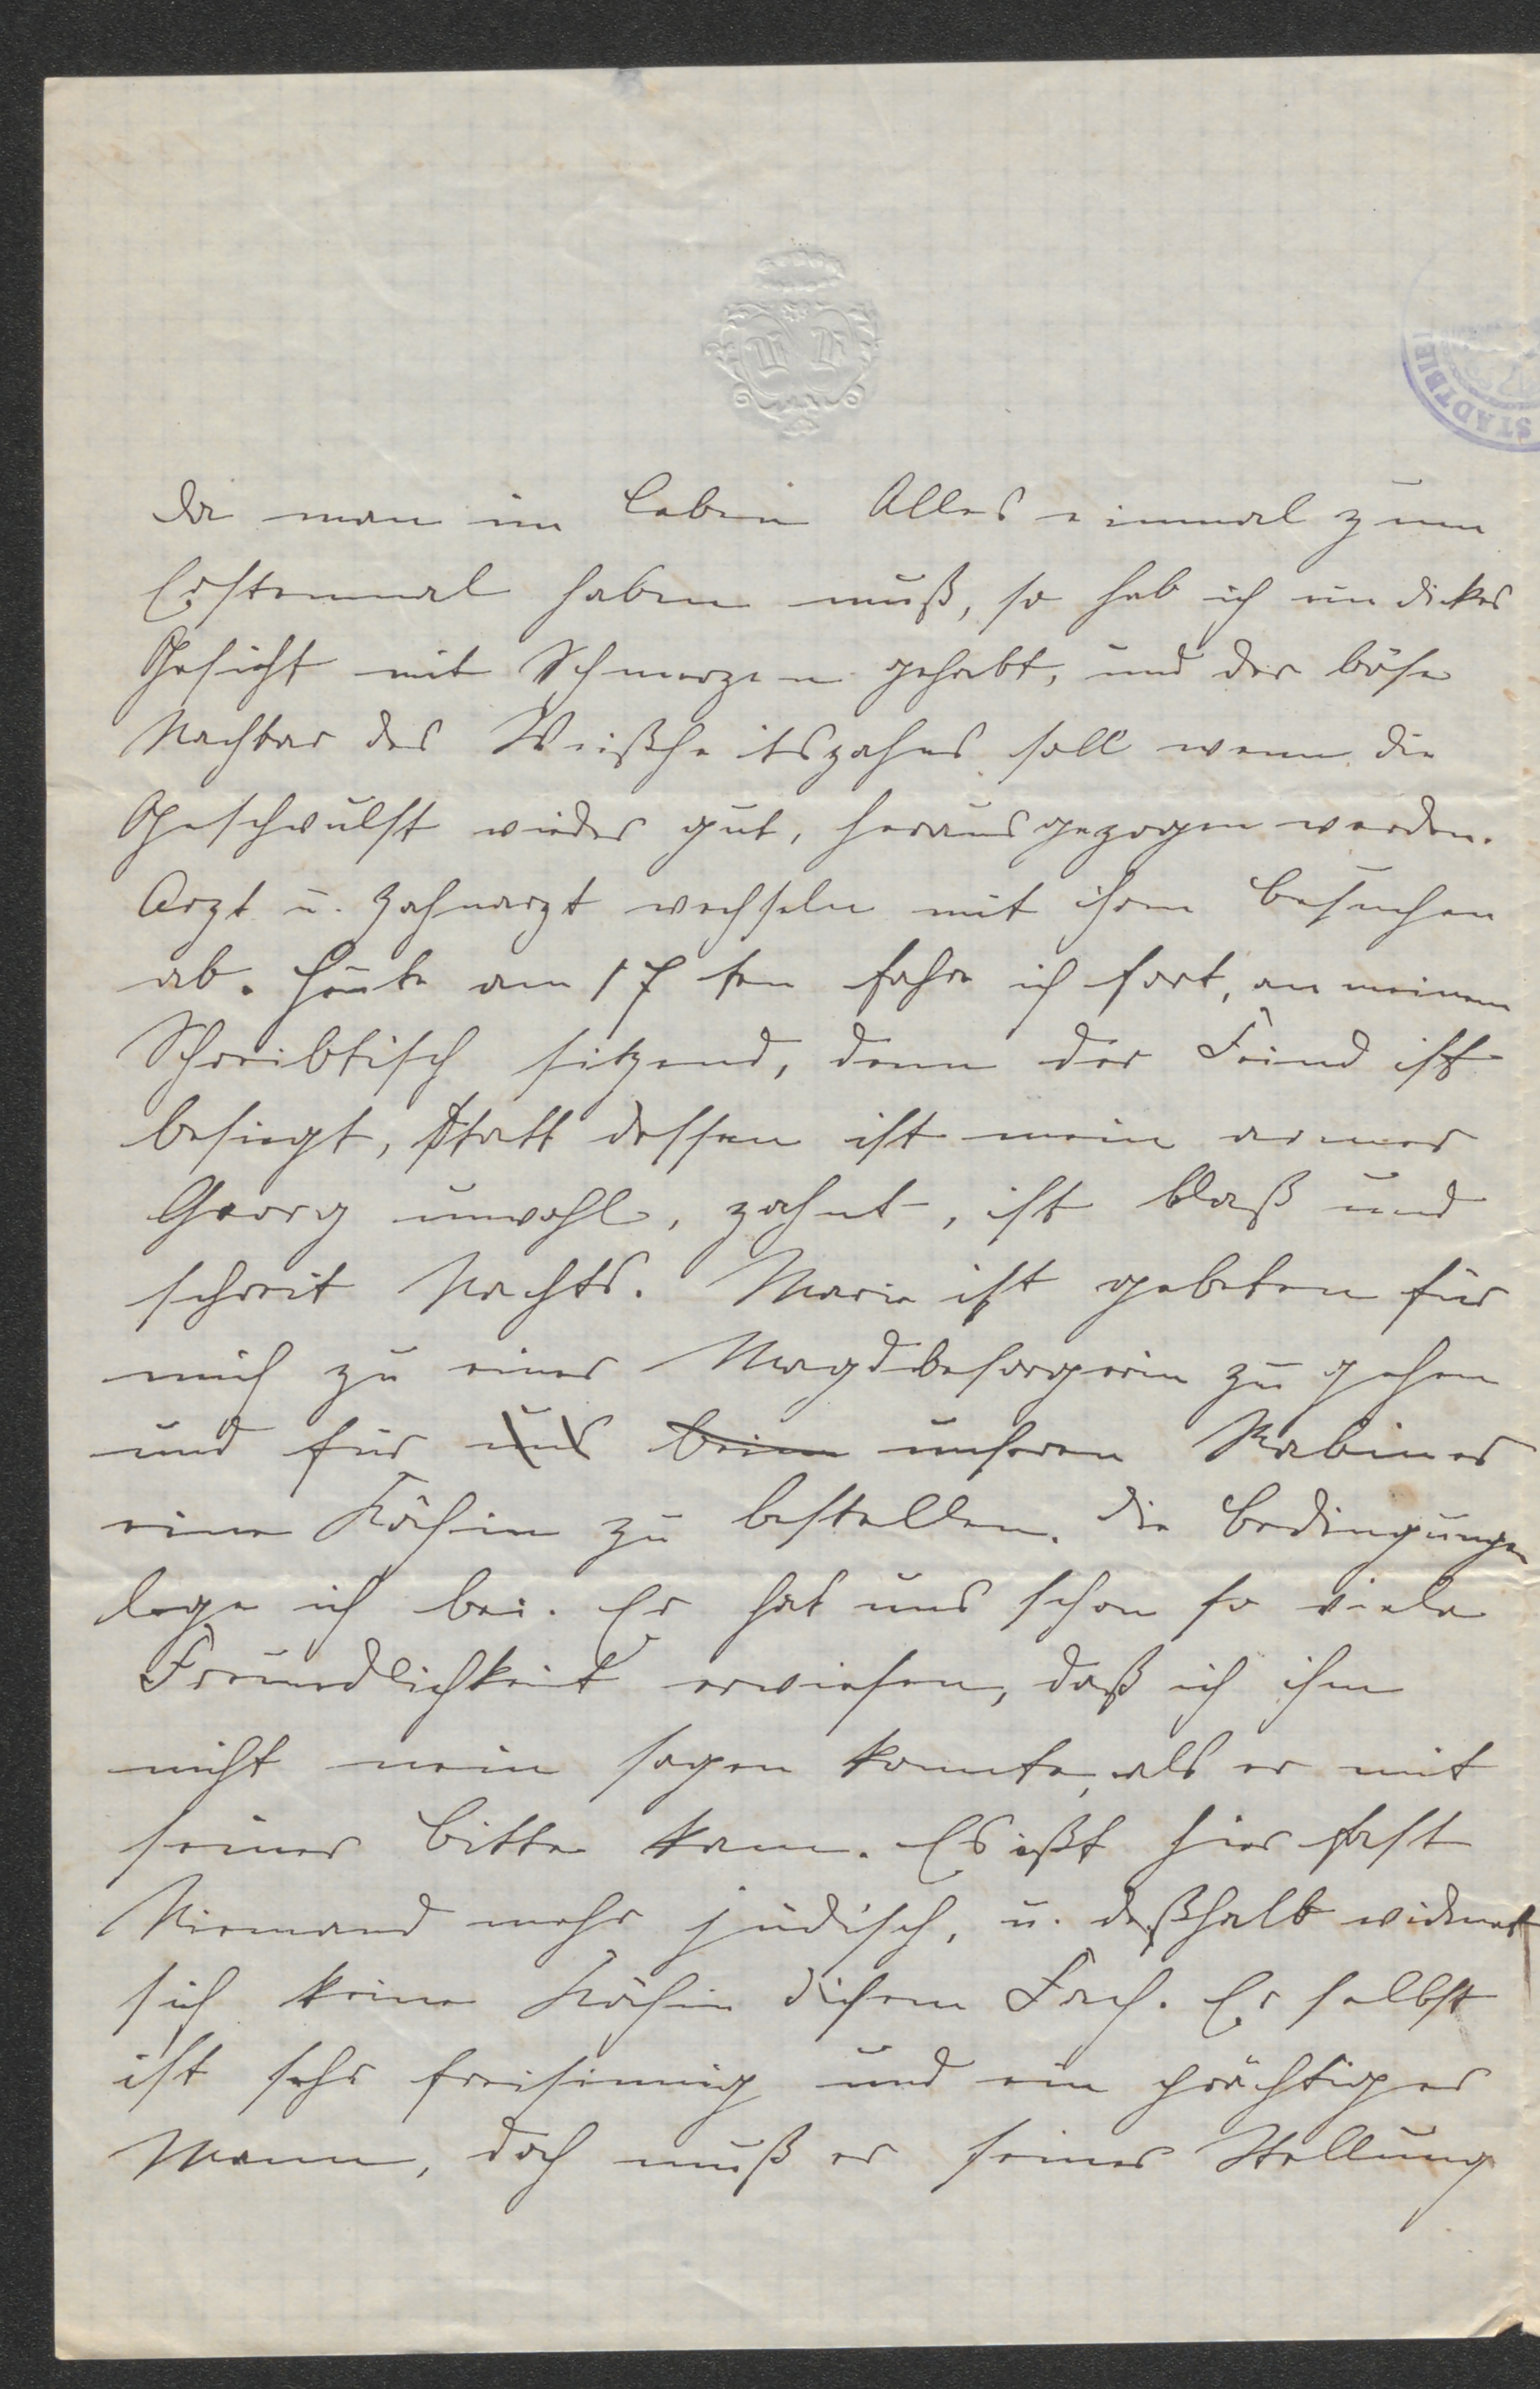 STADTBIB
Da man im Leben Alles einmal zum
Erstenmal haben muß, so hab ich ein dickes
Gesicht mit Schmerzen gehabt, und der böse
Nachbar des Weißheitszahns soll wenn die
Geschwulst wieder gut, herausgezogen werden.
Arzt u. Zahnarzt wechseln mit ihren Besuchen
ab. Heute am 17ten fahre ich fort, an meinem
Schreibtisch sitzend, denn der Feind ist
besiegt, statt dessen ist mein armer
Georg unwohl, zahnt, ist blaß und
schreit Nachts. Marie ist gebeten für
mich zu einer Magdbesorgerin zu gehen
und für uns beim unseren Rabiner
eine Köchin zu bestellen. Die Bedingungen
lege ich bei. Er hat uns schon so viele
Freundlichkeit erwiesen, daß ich ihm
nicht nein sagen konnte, als er mit
seiner Bitte kam. Es ißt hier fast
Niemand mehr jüdisch, u. deßhalb widmet
sich keine Köchin diesem Fach. Er selbst
ist sehr freisinnig und ein prächtiger
Mann, doch muß er seiner Stellung